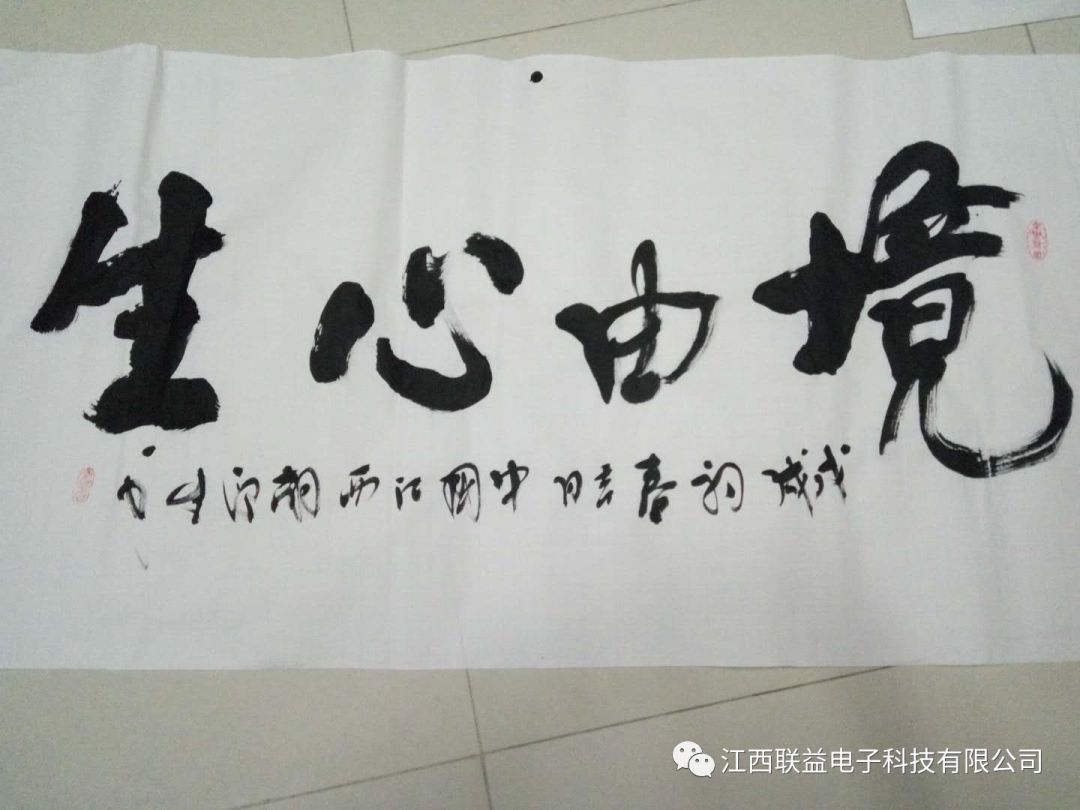 境由心生
戊戌初春吉日中國江西胡浪生
江西联益电子科技有限公司